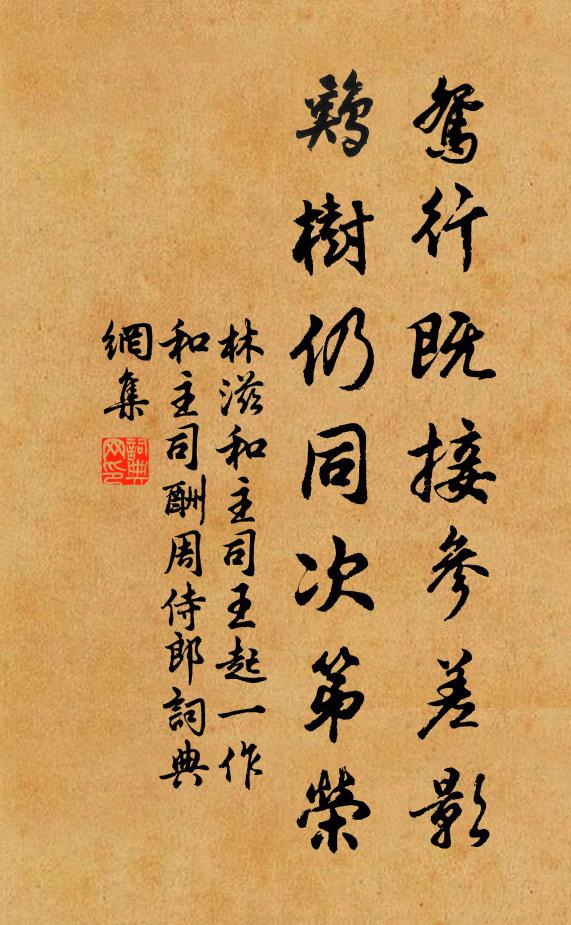 鴛行既接參差影
鷄樹仍同次第榮
林滋和主司王起一作
和主司酬周侍郎詞典
網集
詞典网印